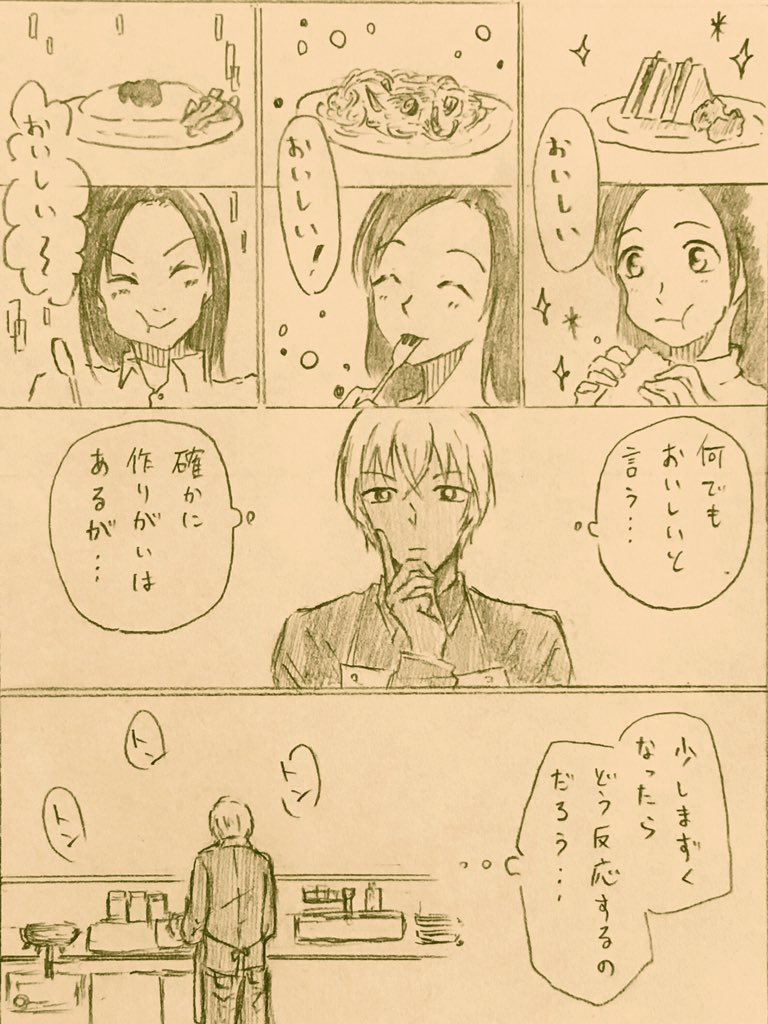 おいしい
おいしい!
おいしい〜
何でも
おいしいと
言う…
確かに
作りがいは
あるが…
少しまずく
なったら
どう反応するの
だろう…
トン
トン
トン